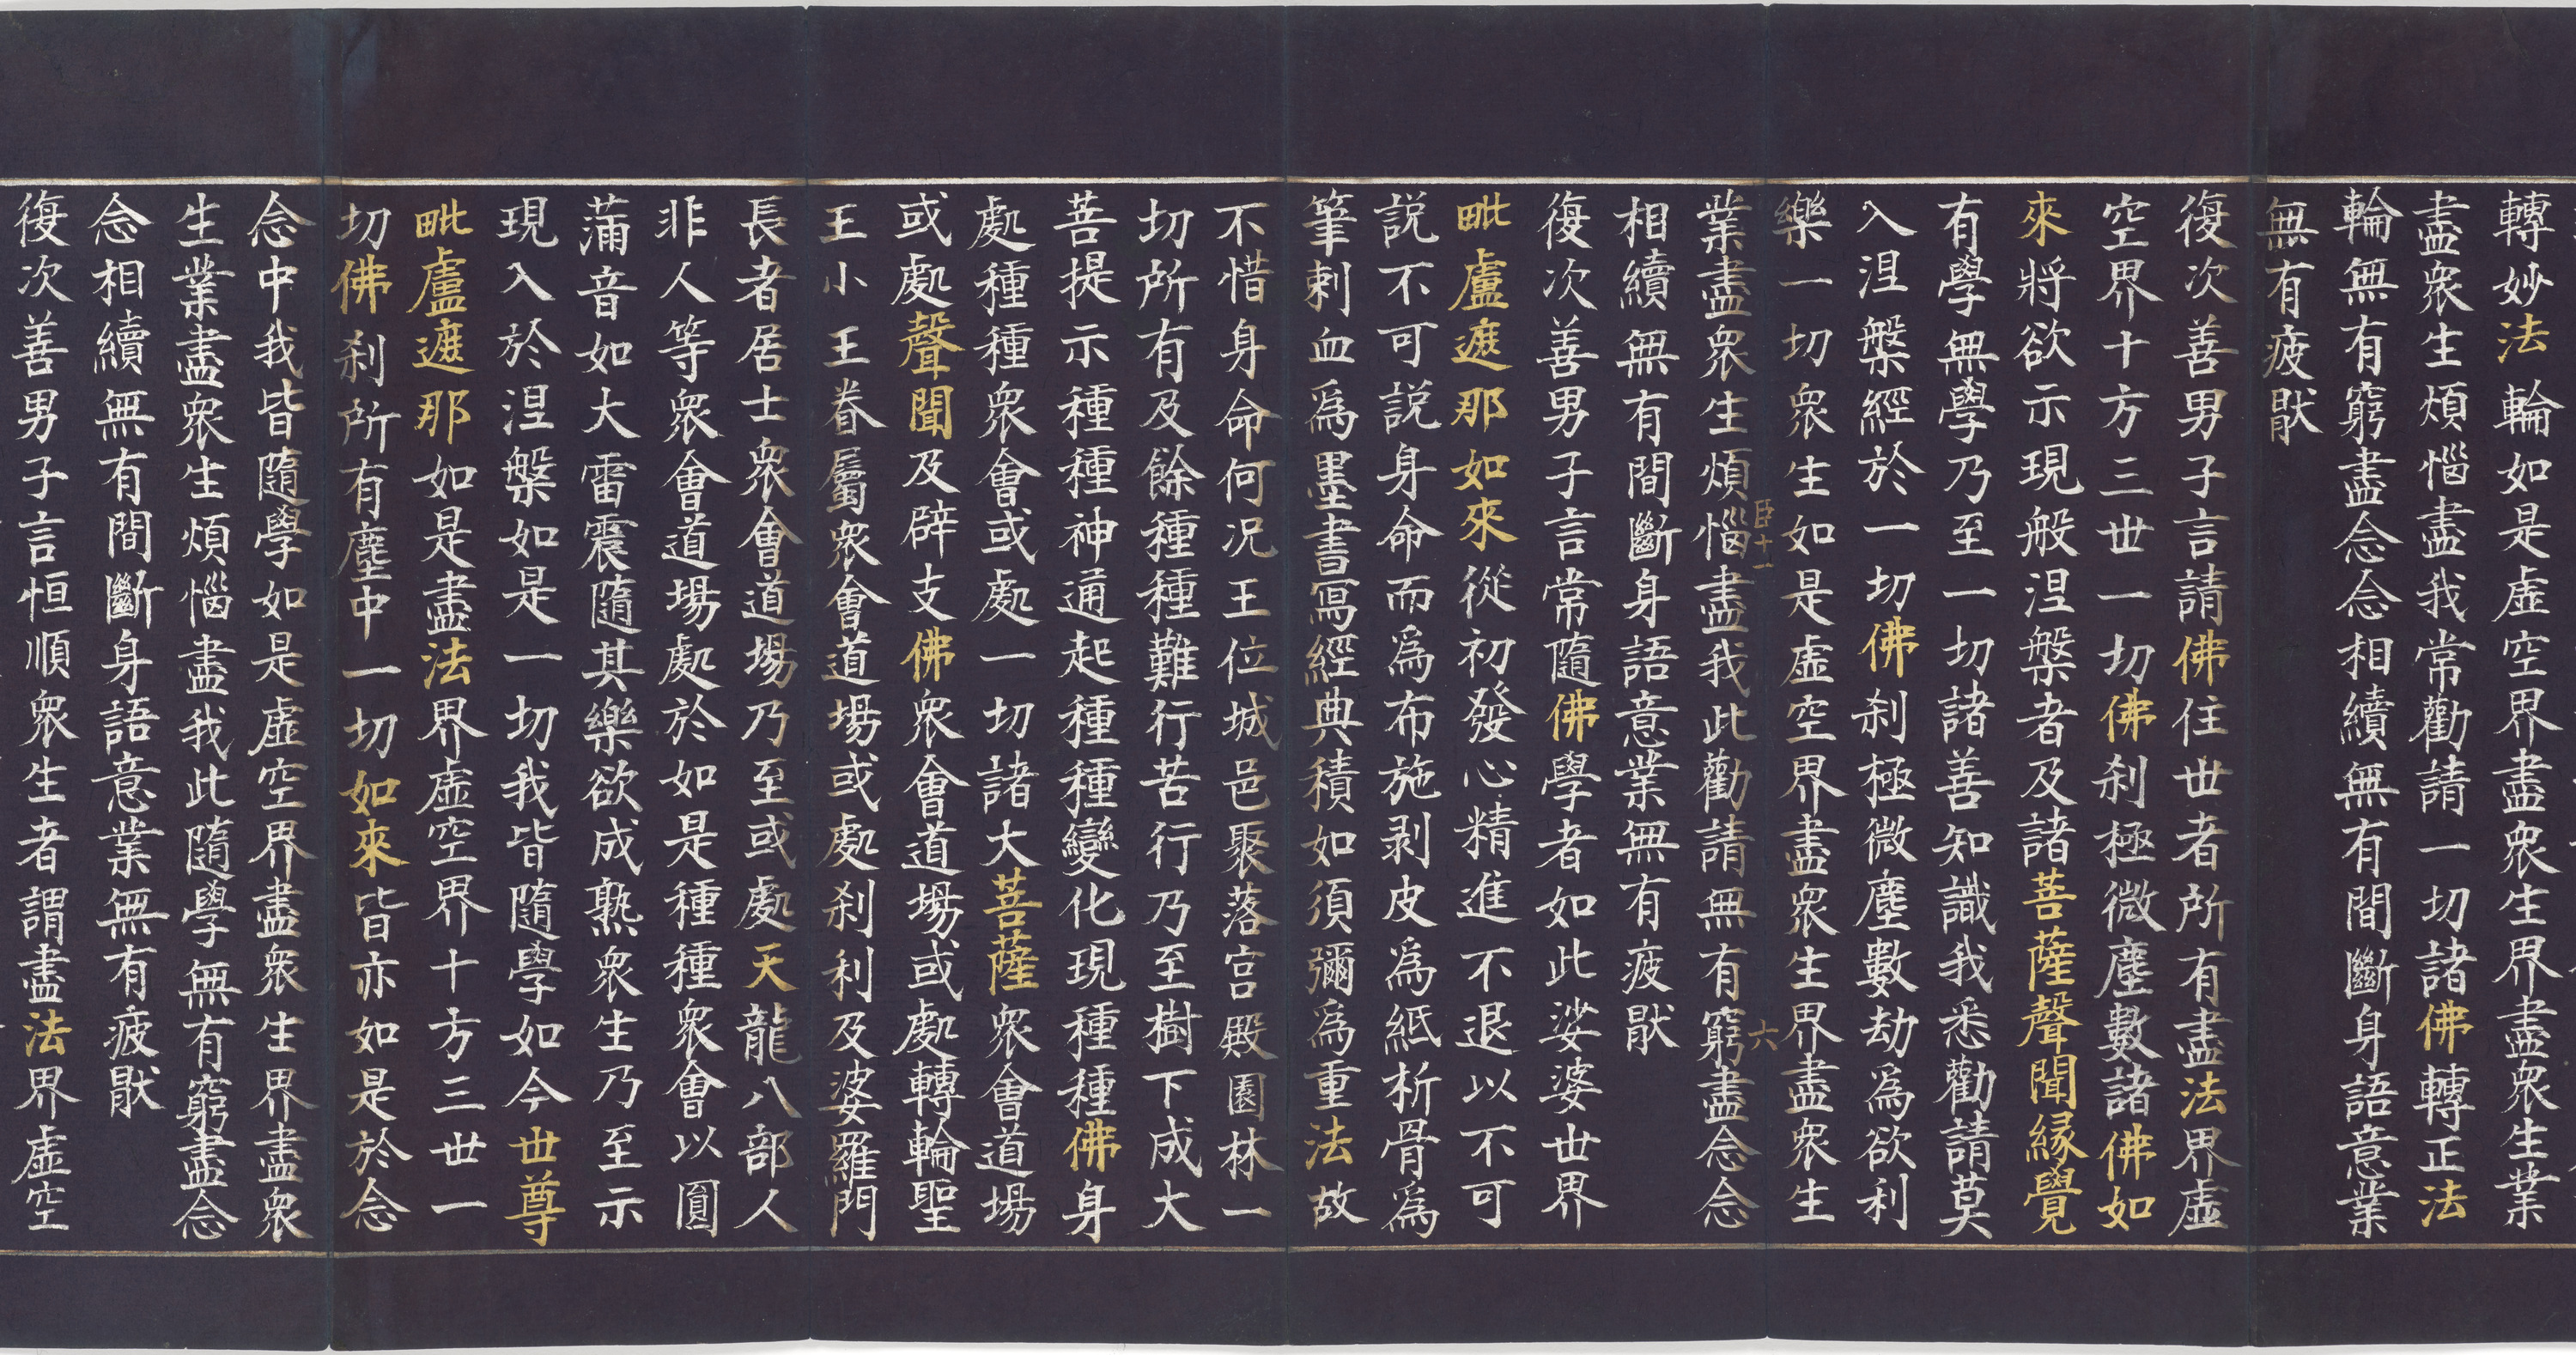 轉妙法輪如是虛空界盡衆生界盡衆生業
盡衆生煩惱盡我常勸請一切諸佛轉正法
輪無有窮盡念念相續無有間斷身語意業
無有疲猒
復次善男子言請佛住世者所有盡法界虛
空界十方三世一切佛刹極微塵數諸佛如
來將欲示現般涅槃者及諸菩薩聲聞緣覺
有學無學乃至一切諸善知識我悉勸請莫
入涅槃經於一切佛刹極微塵數劫爲欲利
樂一切衆生如是虛空界盡衆生界盡衆生
臣十一 六
業盡衆生煩惱盡我此勸請無有窮盡念念
相續無有間斷身語意業無有疲猒
復次善男子言常隨佛學者如此娑婆世界
毗盧遮那如來從初發心精進不退以不可
説不可説身命而爲布施剥皮爲紙析骨爲
筆剌血爲墨書寫經典積如須彌爲重法故
不惜身命何况王位城邑聚落宮殿園林一
切所有及餘種種難行苦行乃至樹下成大
菩提示種種神通起種種變化現種種佛身
處種種衆會或處一切諸大菩薩衆會道場
或處聲聞及辟支佛衆會道場或處轉輪聖
王小王眷屬衆會道場或處刹利及婆羅門
長者居士衆會道場乃至或處天龍八部人
非人等衆會道場處於如是種種衆會以圓
蒲音如大雷震隨其樂欲成熟衆生乃至示
現入於涅槃如是一切我皆隨學如今世尊
毗盧遮那如是盡法界虛空界十方三世一
切佛刹所有塵中一切如來皆亦如是於念
念中我皆隨學如是虛空界盡衆生界盡衆
生業盡衆生煩惱盡我此隨學無有窮盡念
念相續無有間斷身語意業無有疲猒
復次善男子言恒順衆生者謂盡法界虛空